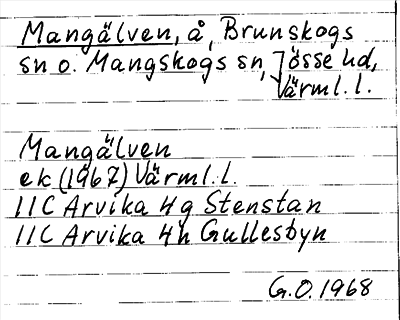 Mangälven, å, Brunskogs
sn o. Mangskogs sn, Jösse hd,
Värml. l.
Mangälven
ek (1967) Värml. l.
11C Arvika 4g Stenstan
11C Arvika 4h Gullesbyn
G.O. 1968